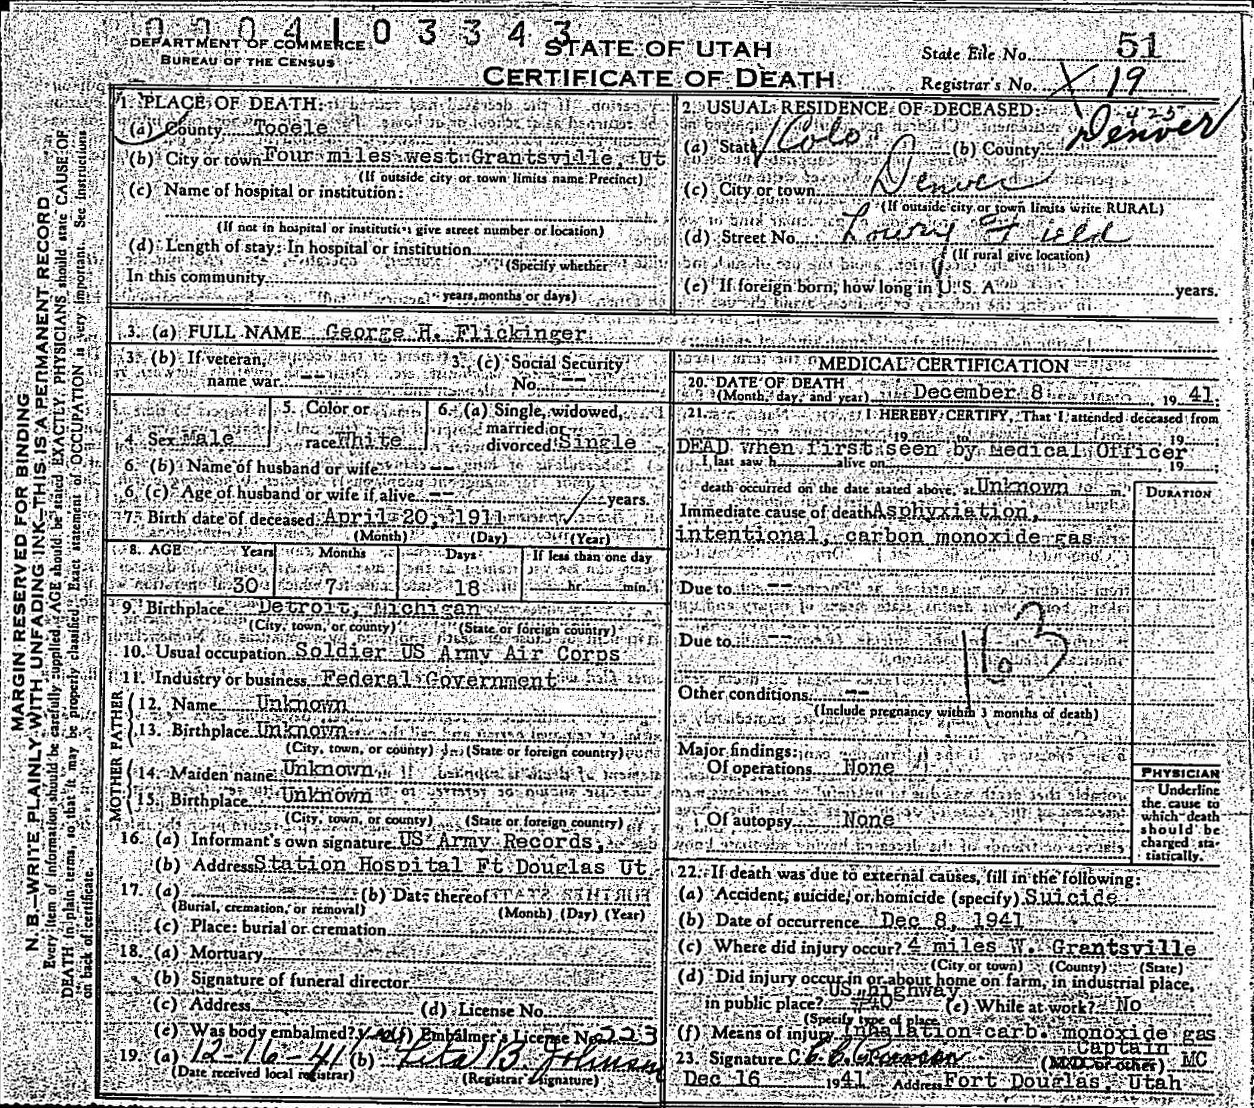 0 0 0 4 1 0 3 3 4 3
DEPARTMENT OF COMMERCE
BUREAU OF THE CENSUS
STATE OF UTAH
CERTIFICATE OF DEATH
State File No. 51
Registrar's No. X 19
MARGIN RESERVED FOR BINDING
N. B.—WRITE PLAINLY WITH UNFADING INK—THIS IS A PERMANENT RECORD
Every item of information should be carefully supplied. AGE should be stated EXACTLY. PHYSICIANS should state CAUSE OF
DEATH in plain terms, so that it may be properly classified. Exact statement of OCCUPATION is very important. See instructions
on back of certificate.
1. PLACE OF DEATH:
(a) County Tooele
(b) City or town Four miles west Grantsville, Ut
(If outside city or town limits name Precinct)
(c) Name of hospital or institution:
(If not in hospital or institution give street number or location)
(d) Length of stay: In hospital or institution
(Specify whether
In this community
years, months or days)
2. USUAL RESIDENCE OF DECEASED:
(a) State Colo (b) County Denver
(c) City or town Denver
(If outside city or town limits write RURAL)
(d) Street No. Lowry Field
(If rural give location)
(e) If foreign born, how long in U. S. A. years.
3. (a) FULL NAME George H. Flickinger
3. (b) If veteran, name war --
3. (c) Social Security No. --
4. Sex Male
5. Color or race White
6. (a) Single, widowed, married or divorced Single
6. (b) Name of husband or wife --
6. (c) Age of husband or wife if alive -- years.
7. Birth date of deceased April 20, 1911
(Month) (Day) (Year)
8. AGE Years Months Days If less than one day
30 7 18 hr. min.
9. Birthplace Detroit, Michigan
(City, town, or county) (State or foreign country)
10. Usual occupation Soldier US Army Air Corps
11. Industry or business Federal Government
FATHER
12. Name Unknown
13. Birthplace Unknown
(City, town, or county) (State or foreign country)
MOTHER
14. Maiden name Unknown
15. Birthplace Unknown
(City, town, or county) (State or foreign country)
16. (a) Informant's own signature US Army Records,
(b) Address Station Hospital Ft Douglas Ut
17. (a) (b) Date thereof
(Burial, cremation, or removal) (Month) (Day) (Year)
(c) Place: burial or cremation
18. (a) Mortuary
(b) Signature of funeral director
(c) Address (d) License No.
(e) Was body embalmed? yes (f) Embalmer's License No. 223
19. (a) 12-16-41 (b) B. Johnson
(Date received local registrar) (Registrar's signature)
MEDICAL CERTIFICATION
20. DATE OF DEATH
(Month, day, and year) December 8, 1941
21. I HEREBY CERTIFY, That I attended deceased from
19 to 19
DEAD when first seen by Medical Officer
I last saw h alive on 19
death occurred on the date stated above, at Unknown m.
DURATION
Immediate cause of death Asphyxiation,
intentional, carbon monoxide gas
Due to --
Due to --
163
Other conditions --
(Include pregnancy within 3 months of death)
Major findings:
Of operations None
Of autopsy None
PHYSICIAN
Underline
the cause to
which death
should be
charged sta-
tistically.
22. If death was due to external causes, fill in the following:
(a) Accident, suicide, or homicide (specify) Suicide
(b) Date of occurrence Dec 8, 1941
(c) Where did injury occur? 4 miles W. Grantsville
(City or town) (County) (State)
(d) Did injury occur in or about home on farm, in industrial place,
in public place? US highway #40 (e) While at work? No
(Specify type of place
(f) Means of injury Inhalation carb. monoxide gas
23. Signature Captain MC
(M.D. or other)
Dec 16 1941 Address Fort Douglas, Utah